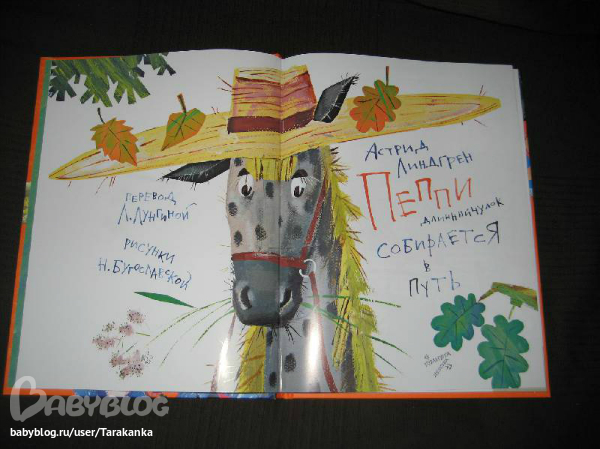 ПЕРЕВОД
Л. ЛУНГИНОЙ
РИСУНКИ
Н. БУГОСЛАВСКОЙ
АСТРИД
ЛИНДГРЕН
ПЕППИ
ДЛИННЫЙЧУЛОК
СОБИРАЕТСЯ
В
ПУТЬ
BABYBLOG
babyblog.ru/user/Tarakanka